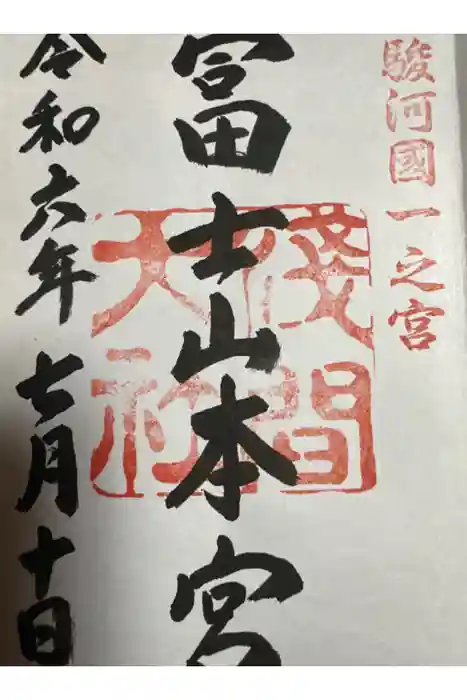 駿河國一之宮
富士山本宮
淺間大社
令和六年七月十日